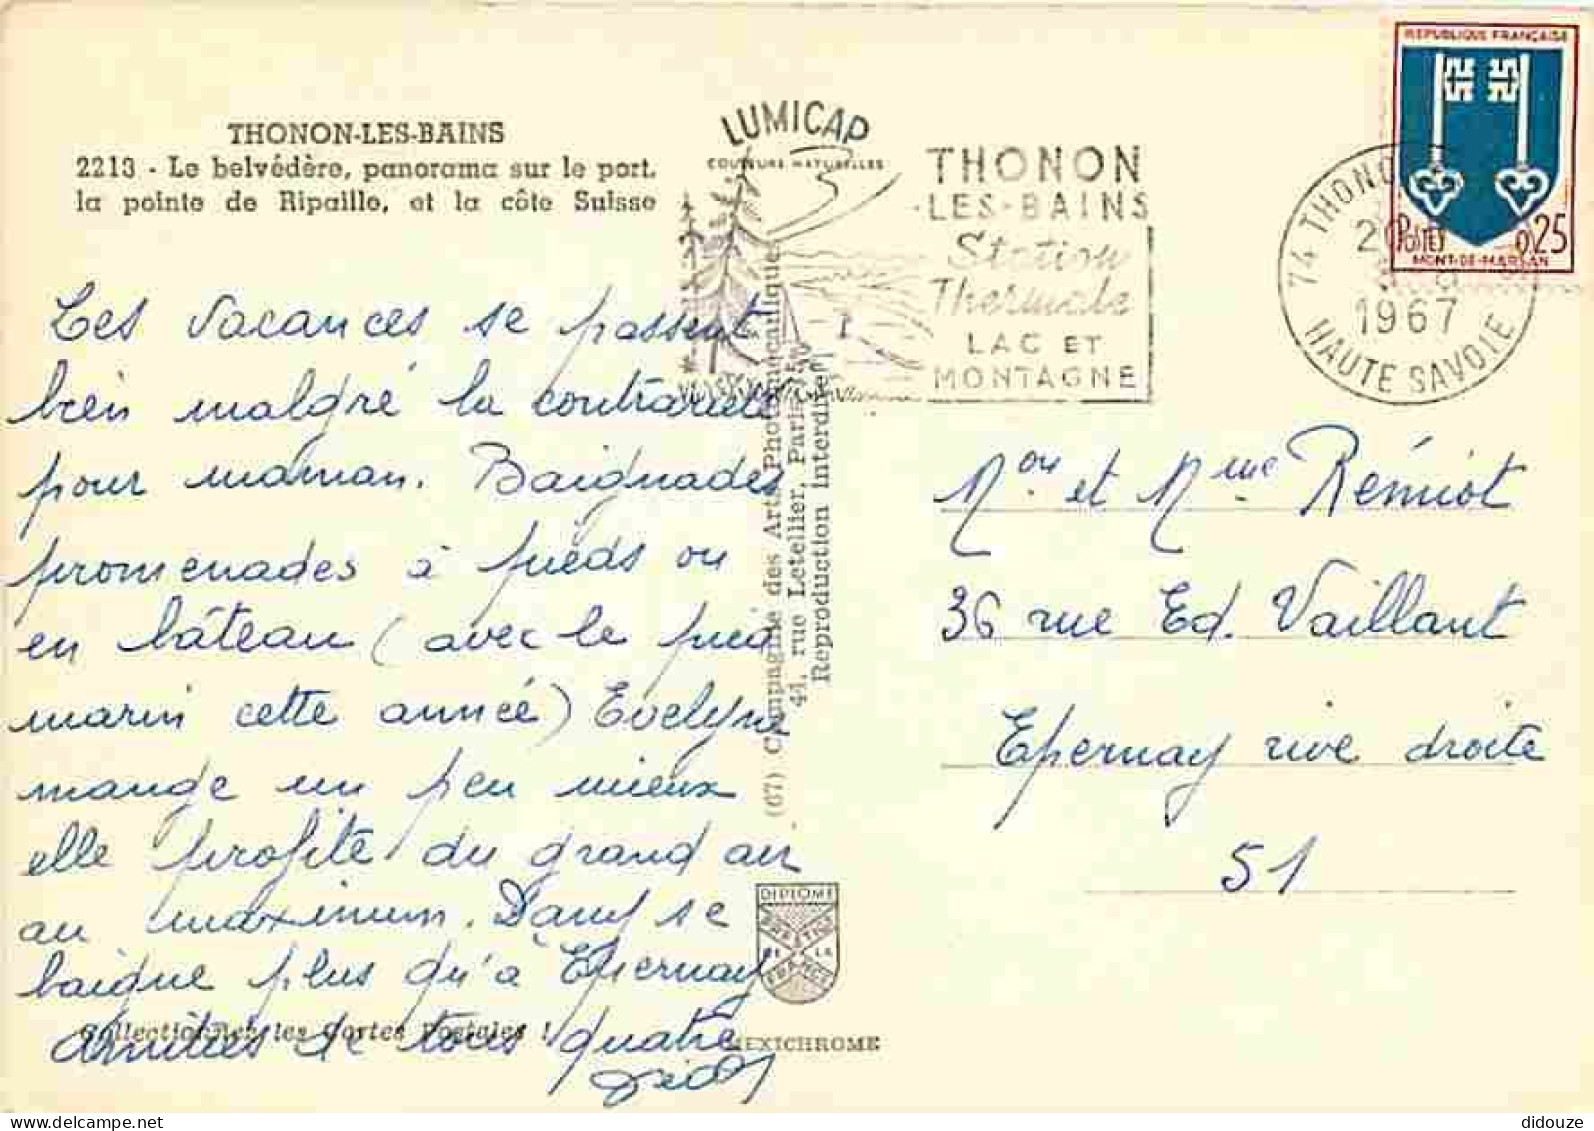 THONON-LES-BAINS
2213 - Le belvédère, panorama sur le port,
la pointe de Ripaille, et la côte Suisse
Les vacances se passent
bien malgré la contrariété
pour maman. Baignades
promenades à pieds ou
en bâteau (avec le pied
marin cette année) Evelyne
mange un peu mieux
elle profite du grand air
au maximum. Dany se
baigne plus qu'à Epernay
Amitiés de tous quatre
Collectionnez les Cartes Postales !
LUMICAP
COULEURS NATURELLES
THONON
LES-BAINS
Station
Thermale
LAC ET
MONTAGNE
74 THONON
20
1967
HAUTE SAVOIE
REPUBLIQUE FRANÇAISE
POSTES 0,25
MONT-DE-MARSAN
(67) Compagnie des Arts Photomécaniques
44, rue Letellier, Paris-15e
Reproduction interdite
Mr et Mme Rémiot
36 rue Ed. Vaillant
Epernay rive droite
51
DIPLOME
PRESTIGE
DE LA
FRANCE
MEXICHROME